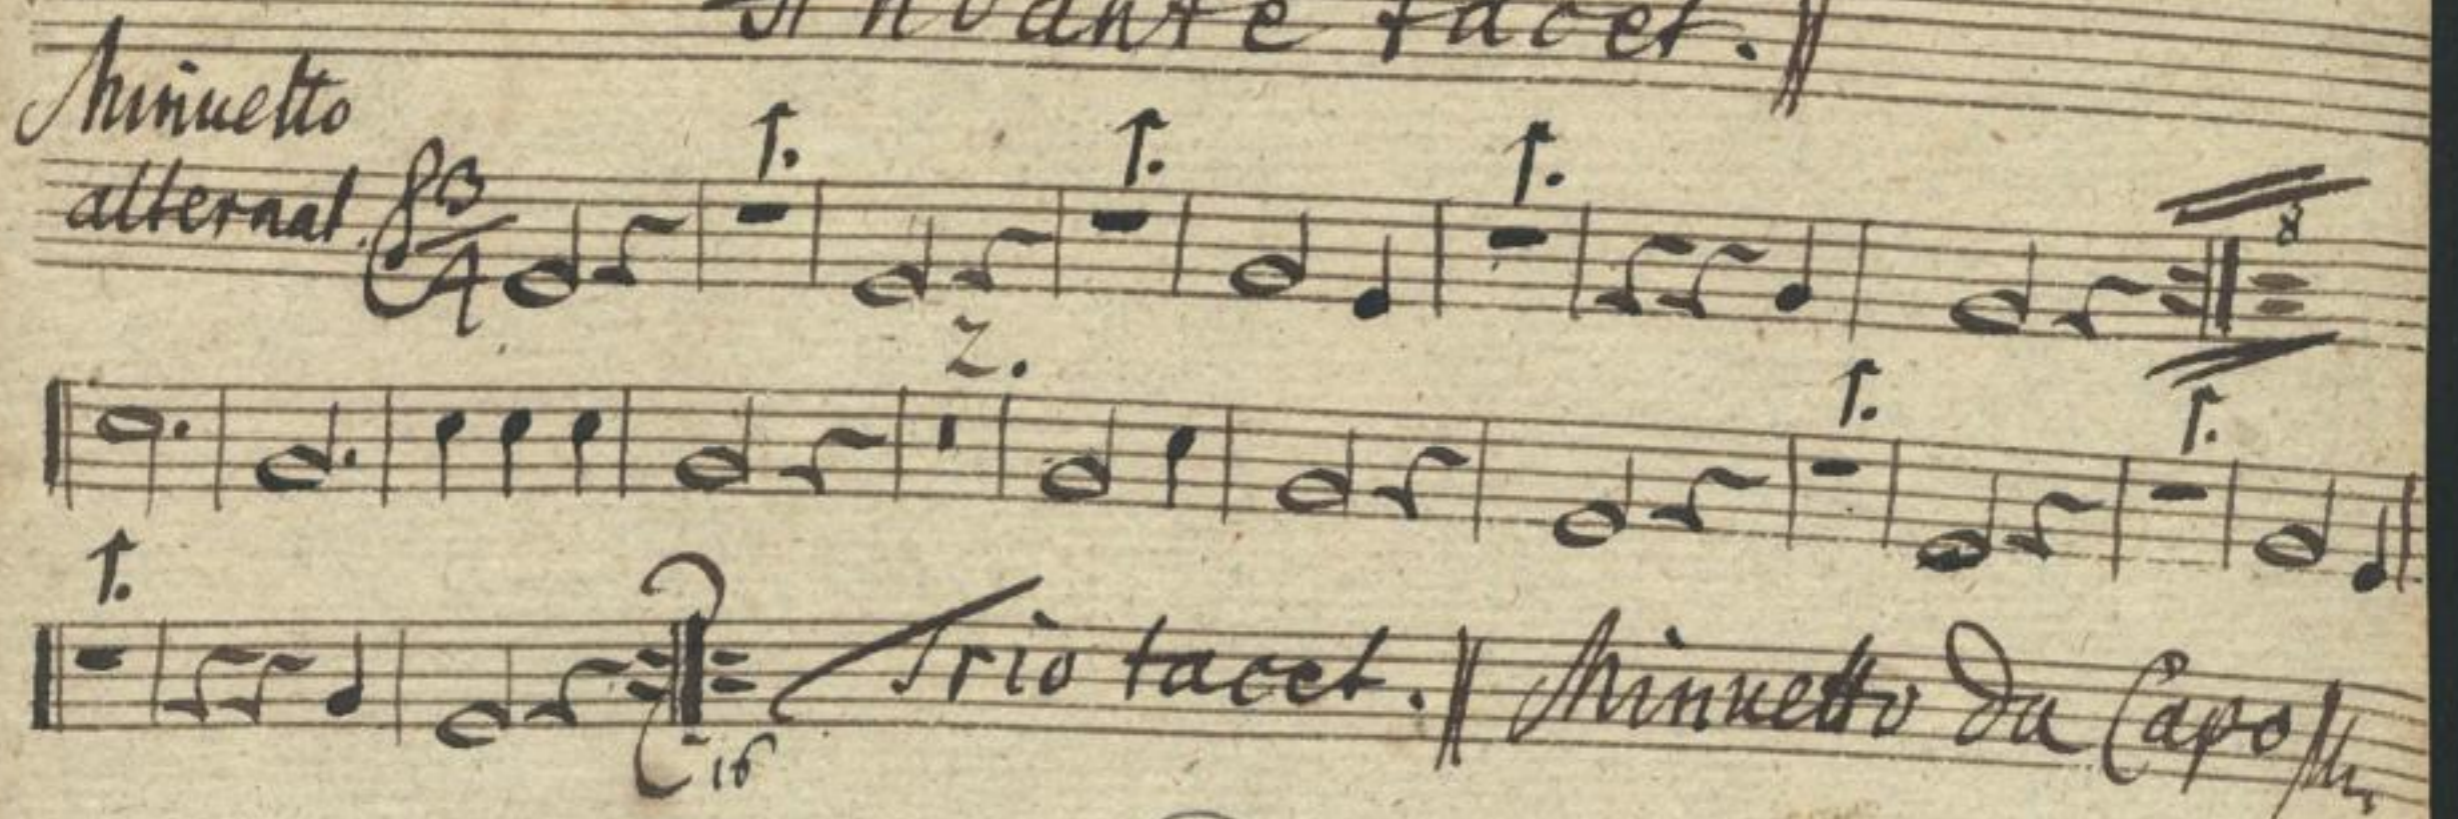 Andante tacet.
Minuetto
1. 1. 1.
alternat. 3 4 8
2. 1. 1.
1.
Trio tacet. Minuetto Da Capo
16